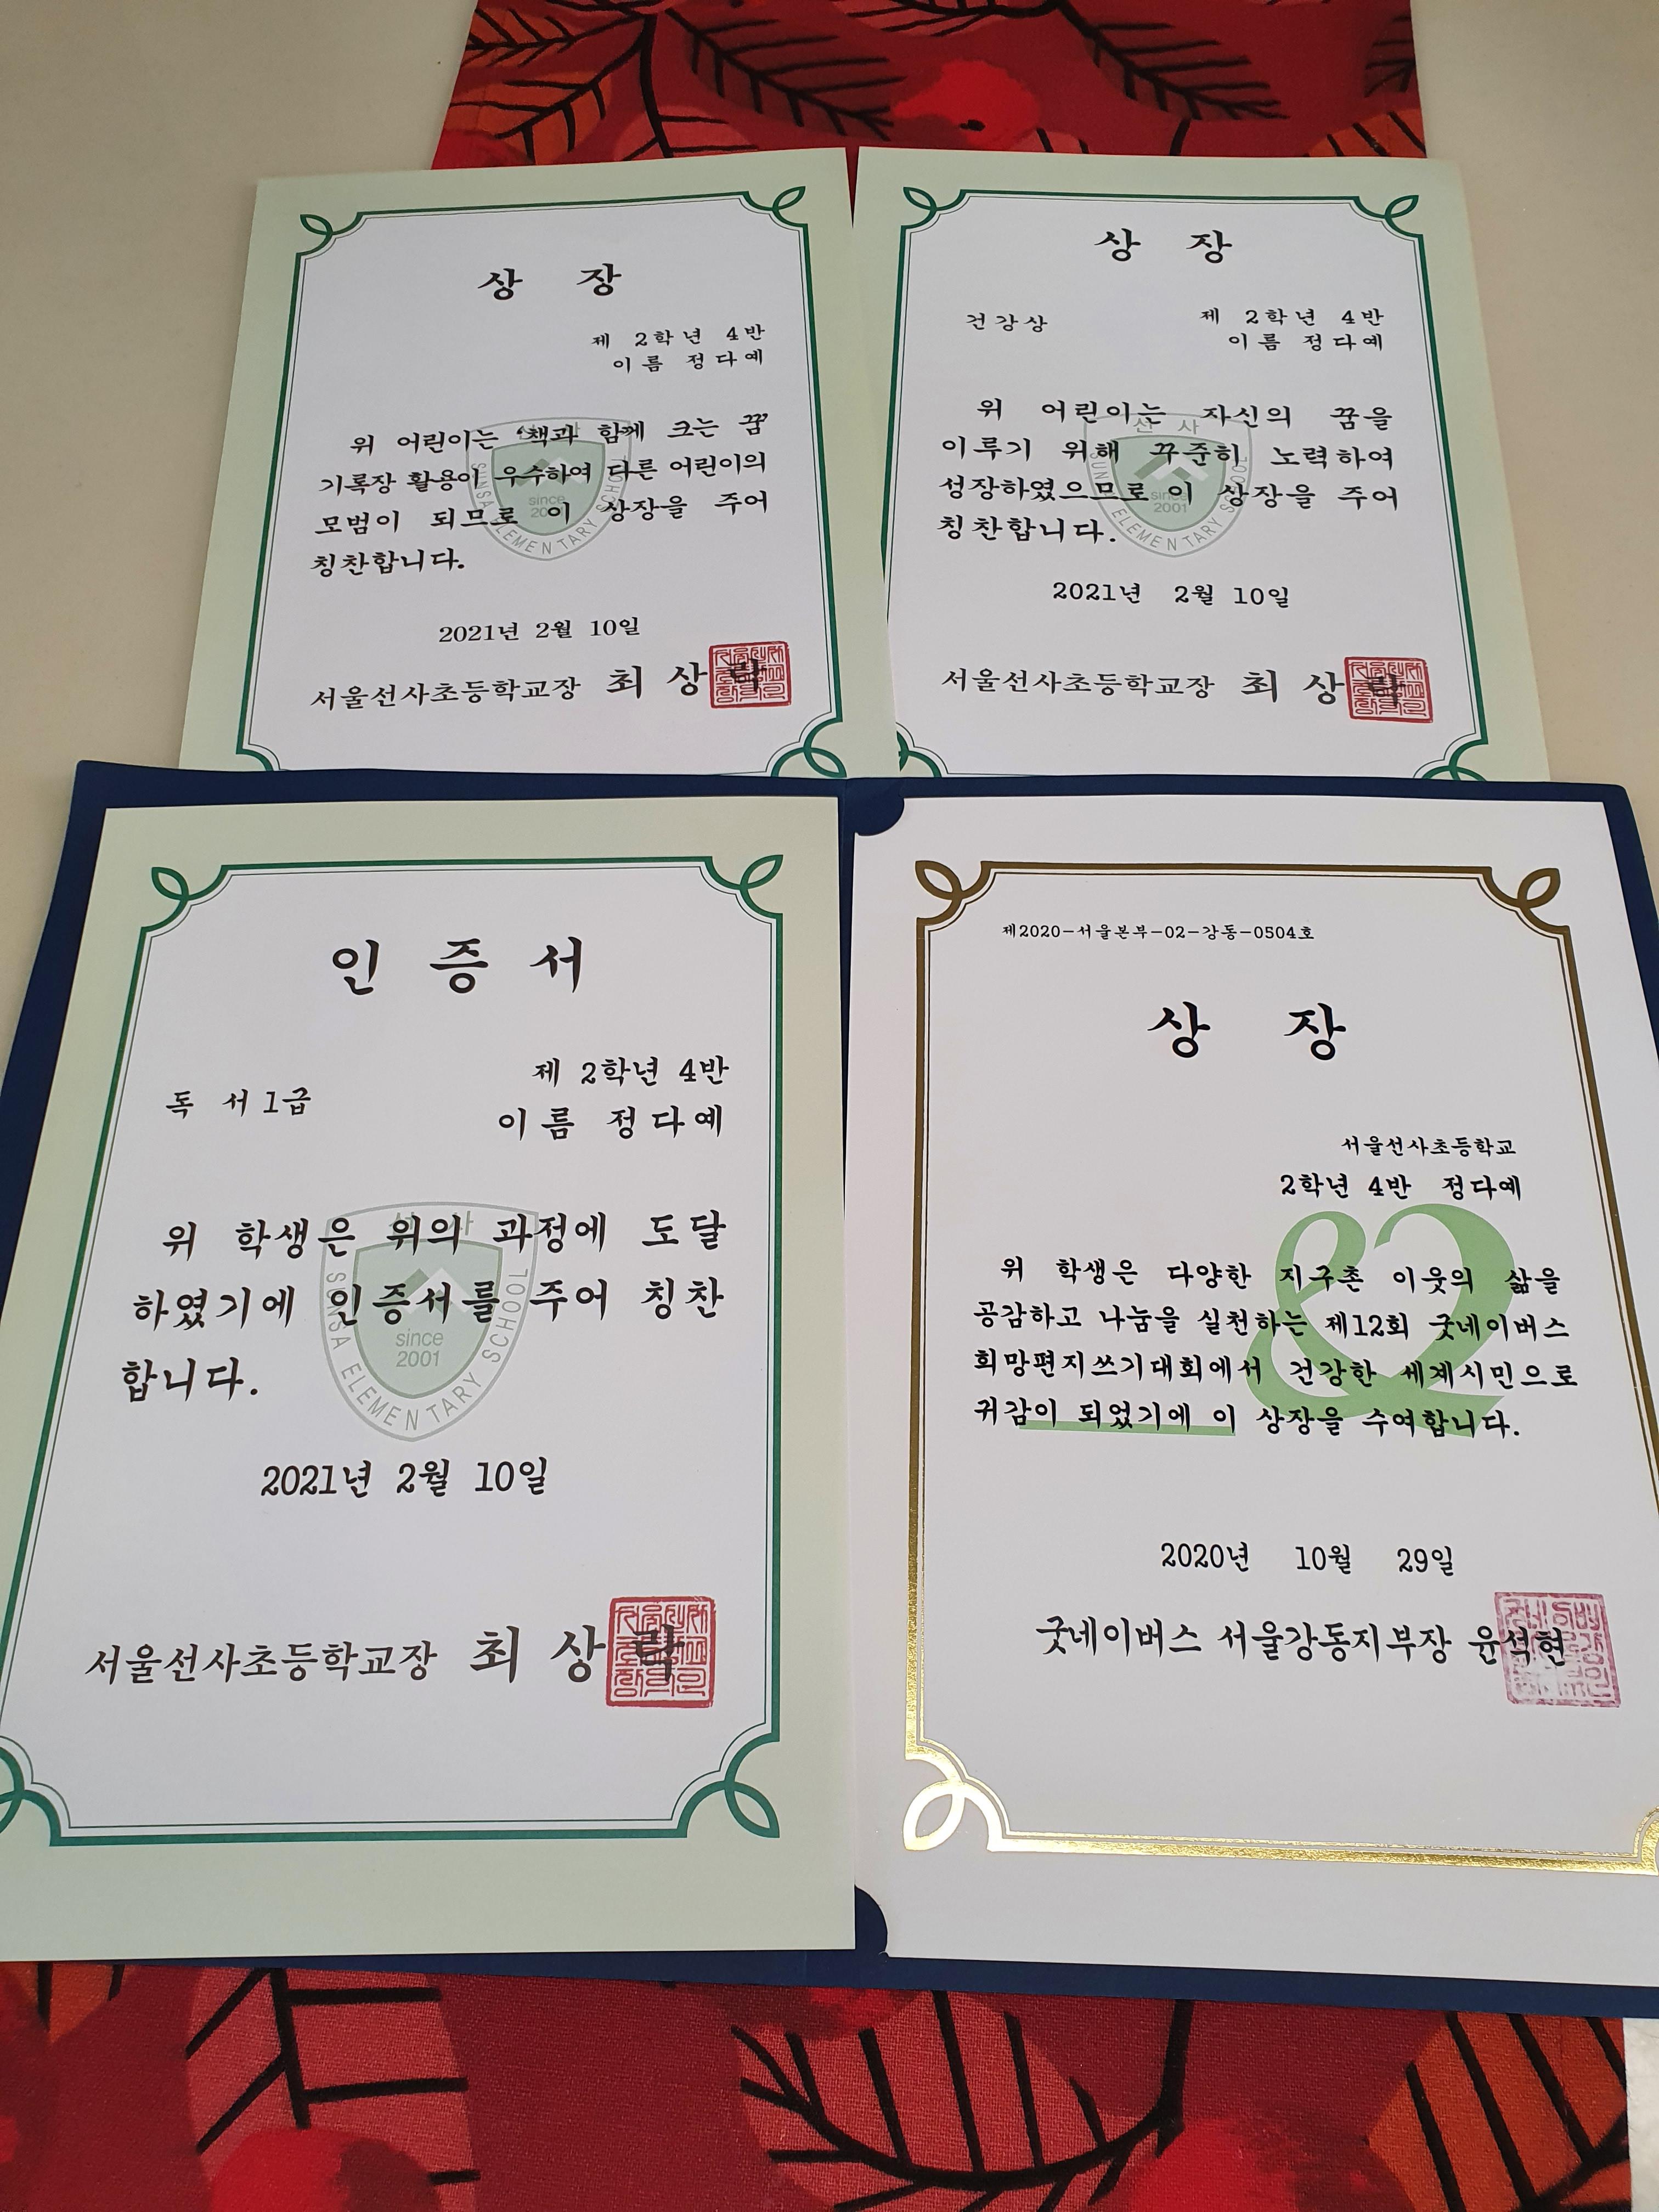 상 장
제 2학년 4반
이름 정다예
위 어린이는 '책과 함께 크는 꿈'
기록장 활용이 우수하여 다른 어린이의
모범이 되므로 이 상장을 주어
칭찬합니다.
2021년 2월 10일
서울선사초등학교장 최 상 락
선 사
SUNSA ELEMENTARY SCHOOL
since
2001
상 장
건강상
제 2학년 4반
이름 정다예
위 어린이는 자신의 꿈을
이루기 위해 꾸준히 노력하여
성장하였으므로 이 상장을 주어
칭찬합니다.
2021년 2월 10일
서울선사초등학교장 최 상 락
선 사
SUNSA ELEMENTARY SCHOOL
since
2001
인 증 서
독 서 1급
제 2학년 4반
이름 정다예
위 학생은 위의 과정에 도달
하였기에 인증서를 주어 칭찬
합니다.
2021년 2월 10일
서울선사초등학교장 최 상 락
선 사
SUNSA ELEMENTARY SCHOOL
since
2001
제2020-서울본부-02-강동-0504호
상 장
서울선사초등학교
2학년 4반 정다예
위 학생은 다양한 지구촌 이웃의 삶을
공감하고 나눔을 실천하는 제12회 굿네이버스
희망편지쓰기대회에서 건강한 세계시민으로
귀감이 되었기에 이 상장을 수여합니다.
2020년 10월 29일
굿네이버스 서울강동지부장 윤석현